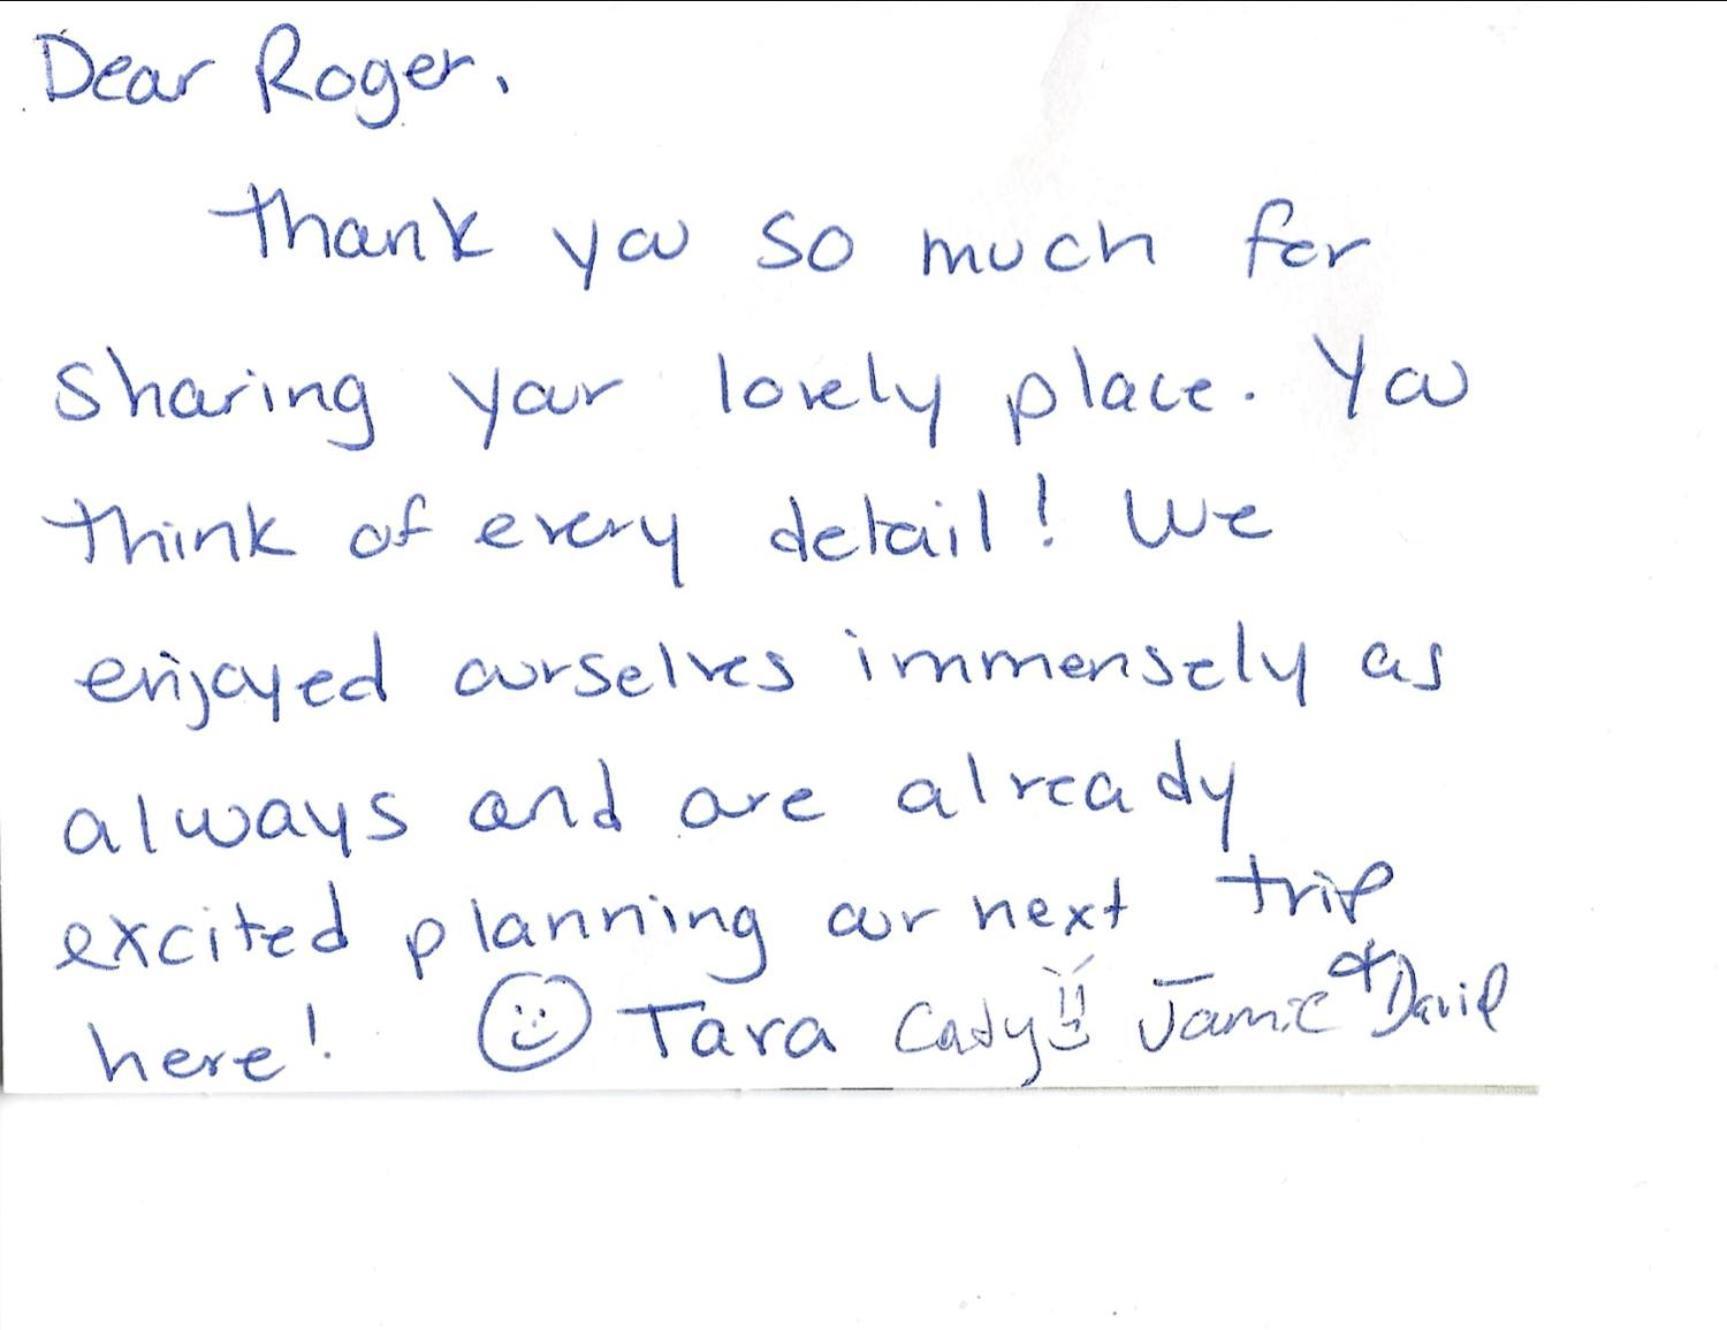 Dear Roger,
Thank you so much for
sharing your lovely place. You
think of every detail! We
enjoyed ourselves immensely as
always and are already
excited planning our next trip
here! ☺ Tara Cady Jamie & David